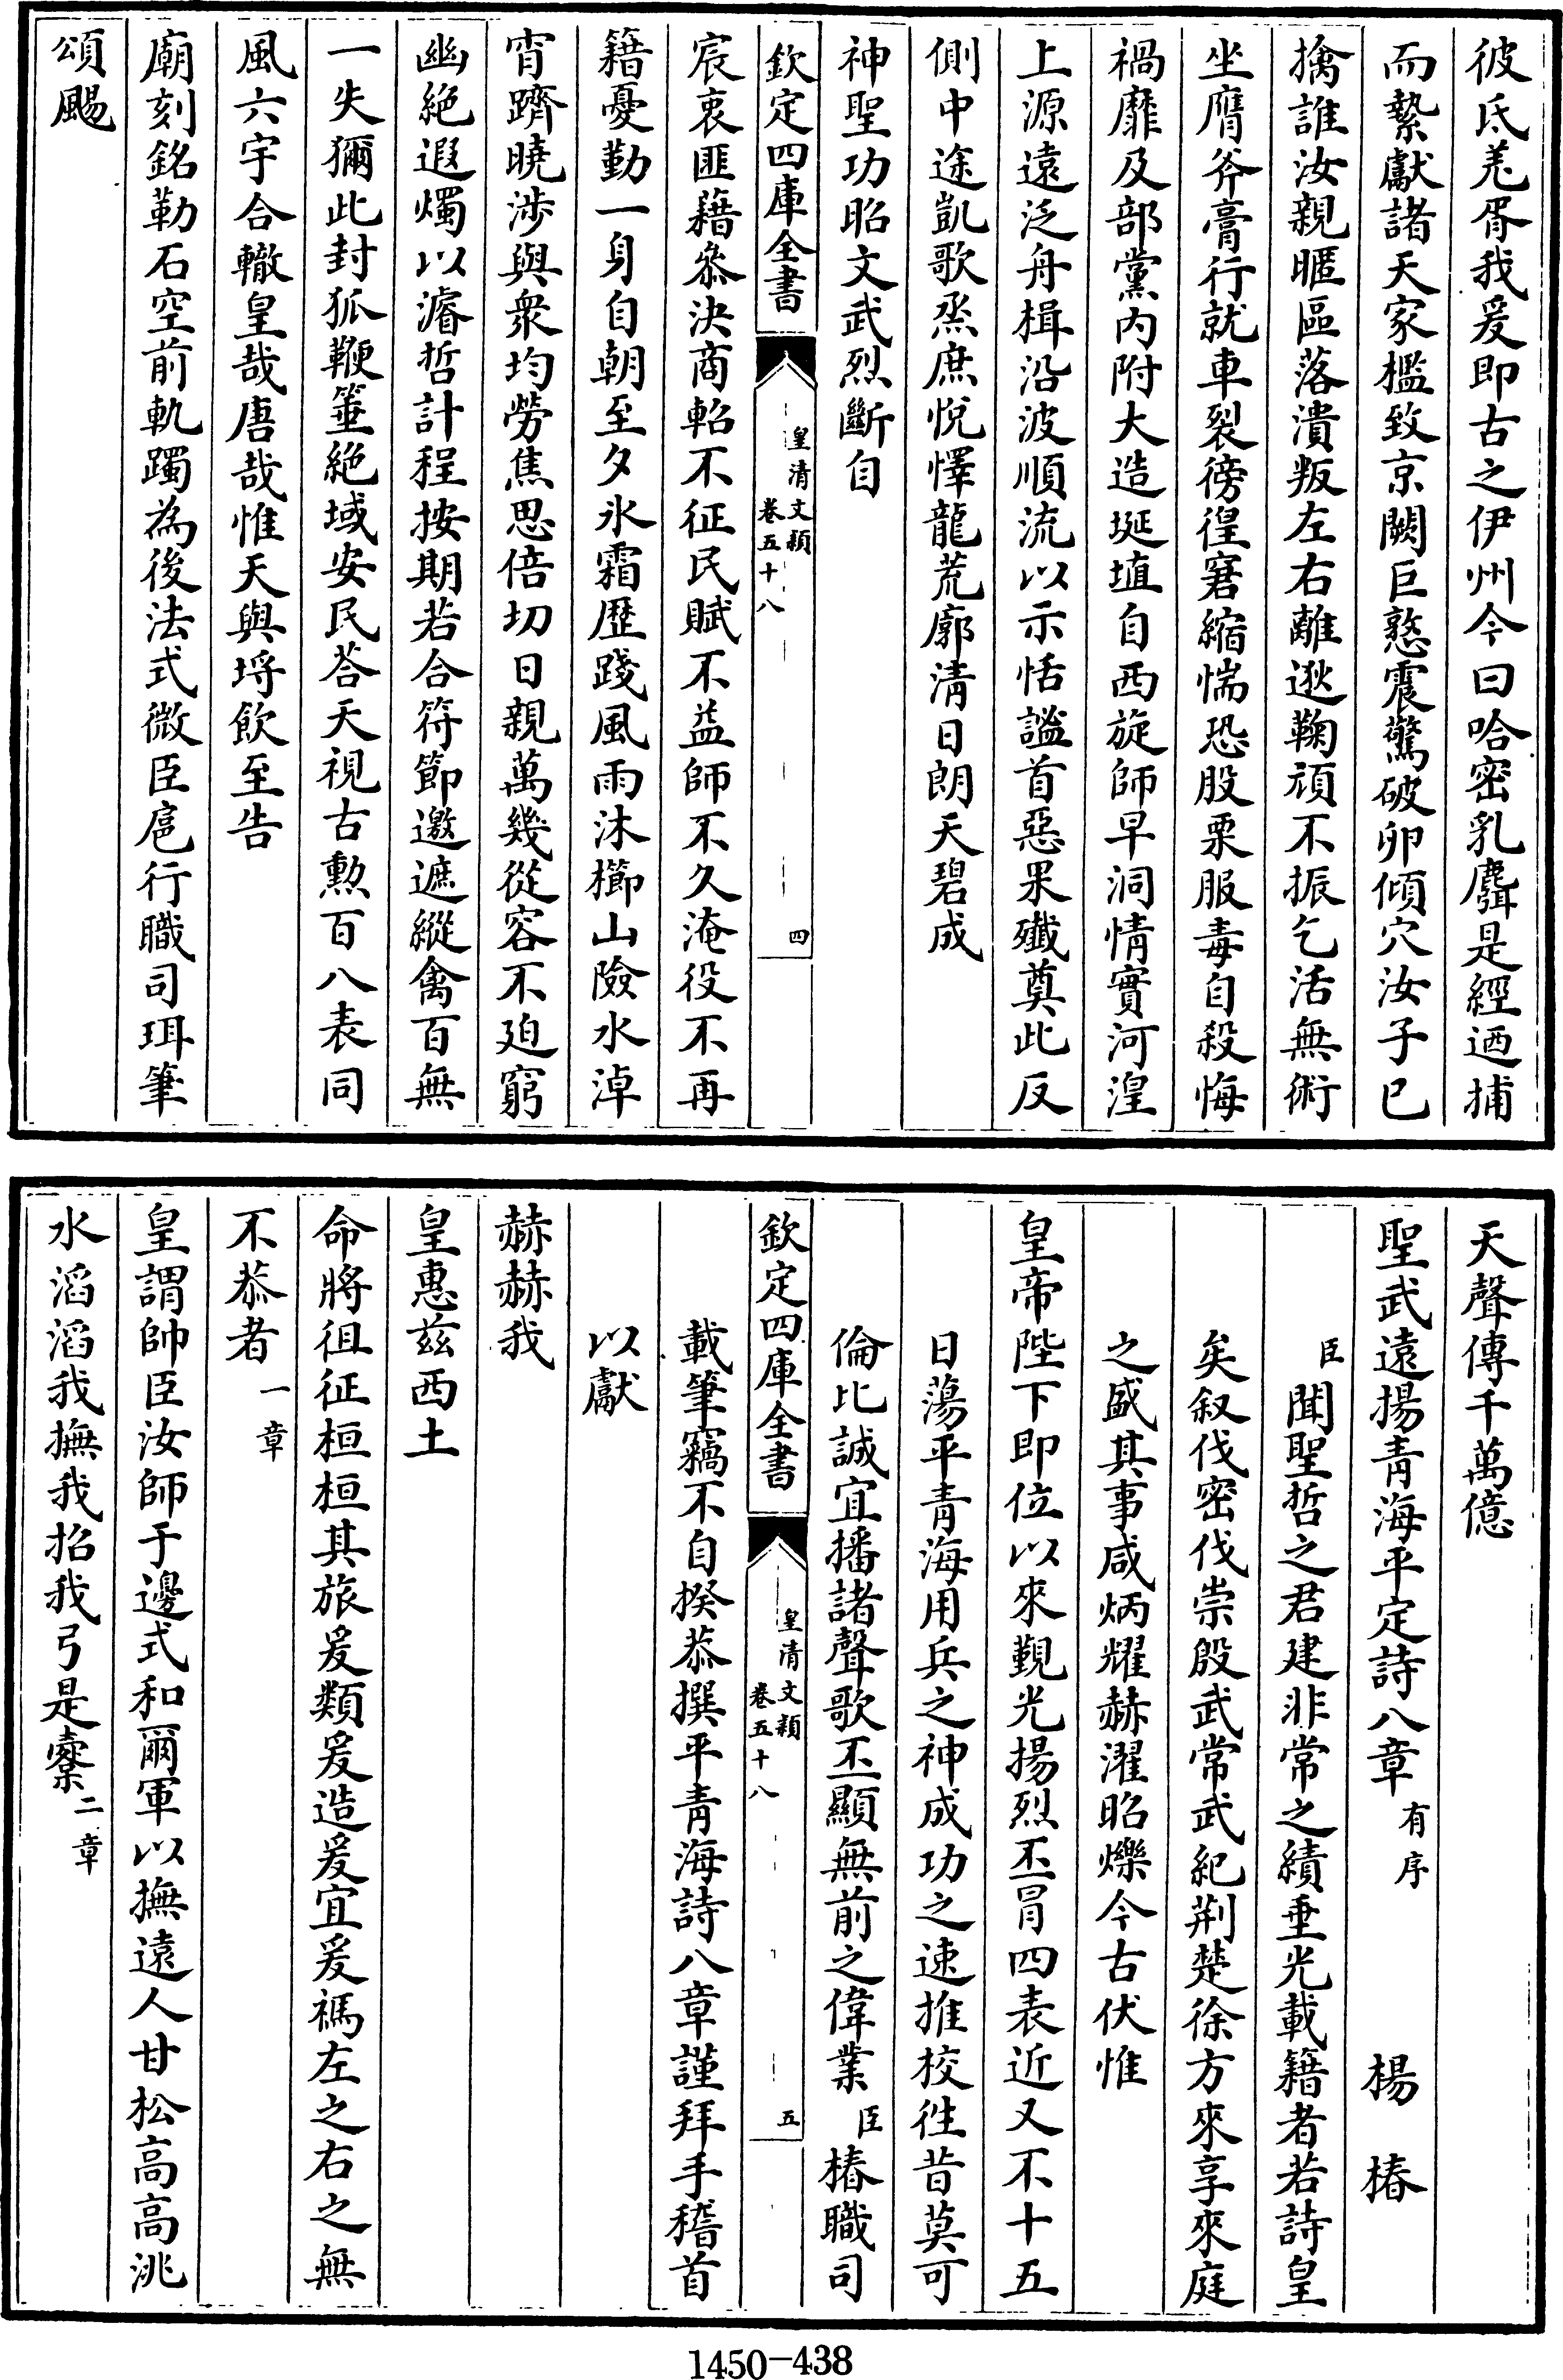 彼氐羌胥我爰即古之伊州今曰哈密乳麛是經迺捕
而縶獻諸天家檻致京闕巨憝震驚破卵傾穴汝子已
擒誰汝親暱區落潰叛左右離逖鞠頑不振乞活無術
坐膺斧膏行就車裂徬徨窘縮惴恐股栗服毒自殺悔
禍靡及部黨內附大造埏埴自西旋師早洞情實河湟
上源遠泛舟楫沿波順流以示恬謐首惡果殲奠此反
側中途凱歌烝庶悅懌龍荒廓清日朗天碧成
神聖功昭文武烈斷自
欽定四庫全書
皇清文穎
卷五十八
四
宸衷匪藉叅決商軺不征民賦不益師不久淹役不再
籍憂勤一身自朝至夕氷霜歷踐風雨沐櫛山險水淖
宵躋曉涉與衆均勞焦思倍切日親萬幾從容不廹窮
幽絶遐燭以濬哲計程按期若合符節邀遮縱禽百無
一失獮此封狐鞭箠絶域安民荅天視古勲百八表同
風六宇合轍皇哉唐哉惟天與埒飲至告
廟刻銘勒石空前軌躅為後法式微臣扈行職司珥筆
頌颺
天聲傳千萬億
聖武遠揚青海平定詩八章有序 楊椿
臣聞聖哲之君建非常之績垂光載籍者若詩皇
矣叙伐密伐崇殷武常武紀荆楚徐方來享來庭
之盛其事咸炳燿赫濯昭爍今古伏惟
皇帝陛下即位以來覲光揚烈丕冒四表近又不十五
日蕩平青海用兵之神成功之速推校徃昔莫可
倫比誠宜播諸聲歌丕顯無前之偉業臣椿職司
欽定四庫全書
皇清文穎
卷五十八
五
載筆竊不自揆恭撰平青海詩八章謹拜手稽首
以獻
赫赫我
皇惠兹西土
命將徂征桓桓其旅爰類爰造爰宜爰禡左之右之無
不恭者一章
皇謂帥臣汝師于邊式和爾軍以撫遠人甘松高高洮
水滔滔我撫我招我弓是櫜二章
1450-438